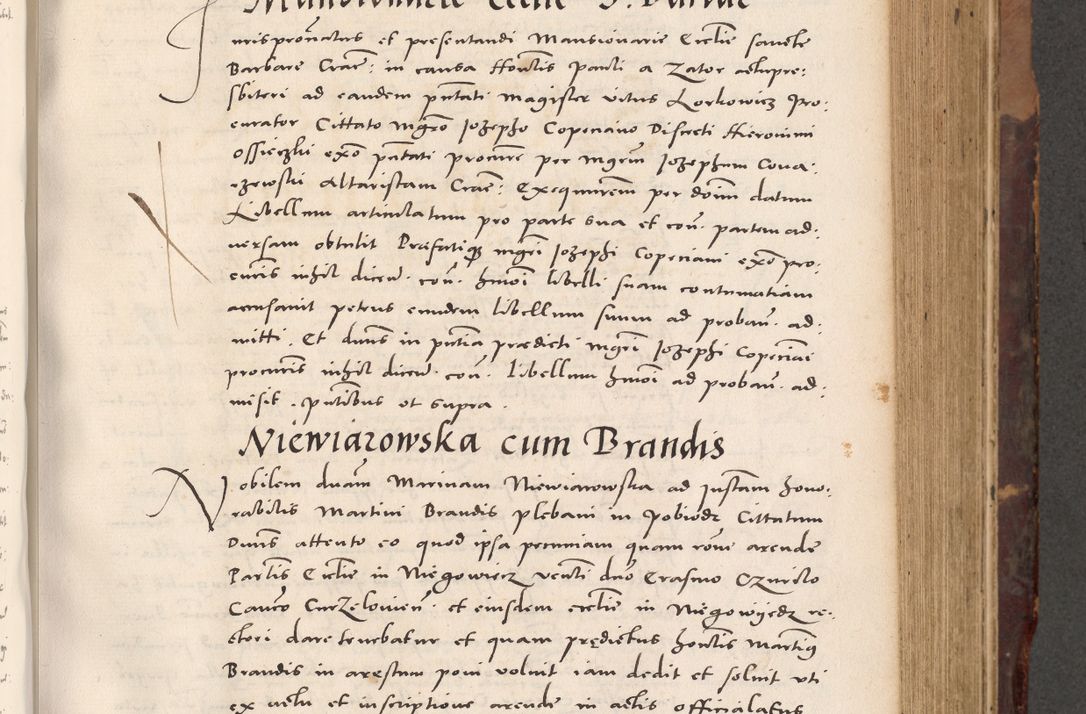 Mansionarie Ecclie S. Barbae
Jurispronatus et presentandi Mansionarie Ecclie sancte
Barbare Crac: in causa Honlis Pauli a Zator actupre:
sbiteri ad eandem pntati magister vitus Korkowicz Pro:
curator Cittato mgro Jozepho Copeciano Discreti Hieronimi
Ossieczki exo pntati procure per mgrum Jozephum Coua:
rzewski Altaristam Crac: Exequutorem per dnum datum
Libellum articulatum pro parte sua et con. partem ad:
uersam obtulit Praefatiq mgri Jozephi Copeciani exo pro:
curis nihil dicen. con. hmoi libelli suam contumatiam
accusauit petens eundem libellum suum ad proban. ad:
mitti. Et dnus in pntia praedicti mgri Jozephi Copeciai
procuris nihil dicen. con. libellum hmoi ad proban. ad:
misit. pntibus ut supra.
Niewiarowska cum Brandis
Nobilem dnam Marinam Niewiarowska ad Instam hono:
rabilis Martini Brandis plebani in Pobiedr Cittatam
Dnus attento eo quod ipsa pecuniam quam rone arende
Partis Ecclie in Niegowicz venti dno Erasmo Czunclo
Canco Curzelouien. et eiusdem ecclie in Niegowijedz re:
ctori dare tenebatur et quam prędictus honlis Martinq
Brandis in arestum poni voluit iam dedit et soluit vti
ex actu et inscriptione arende in actis officialatus